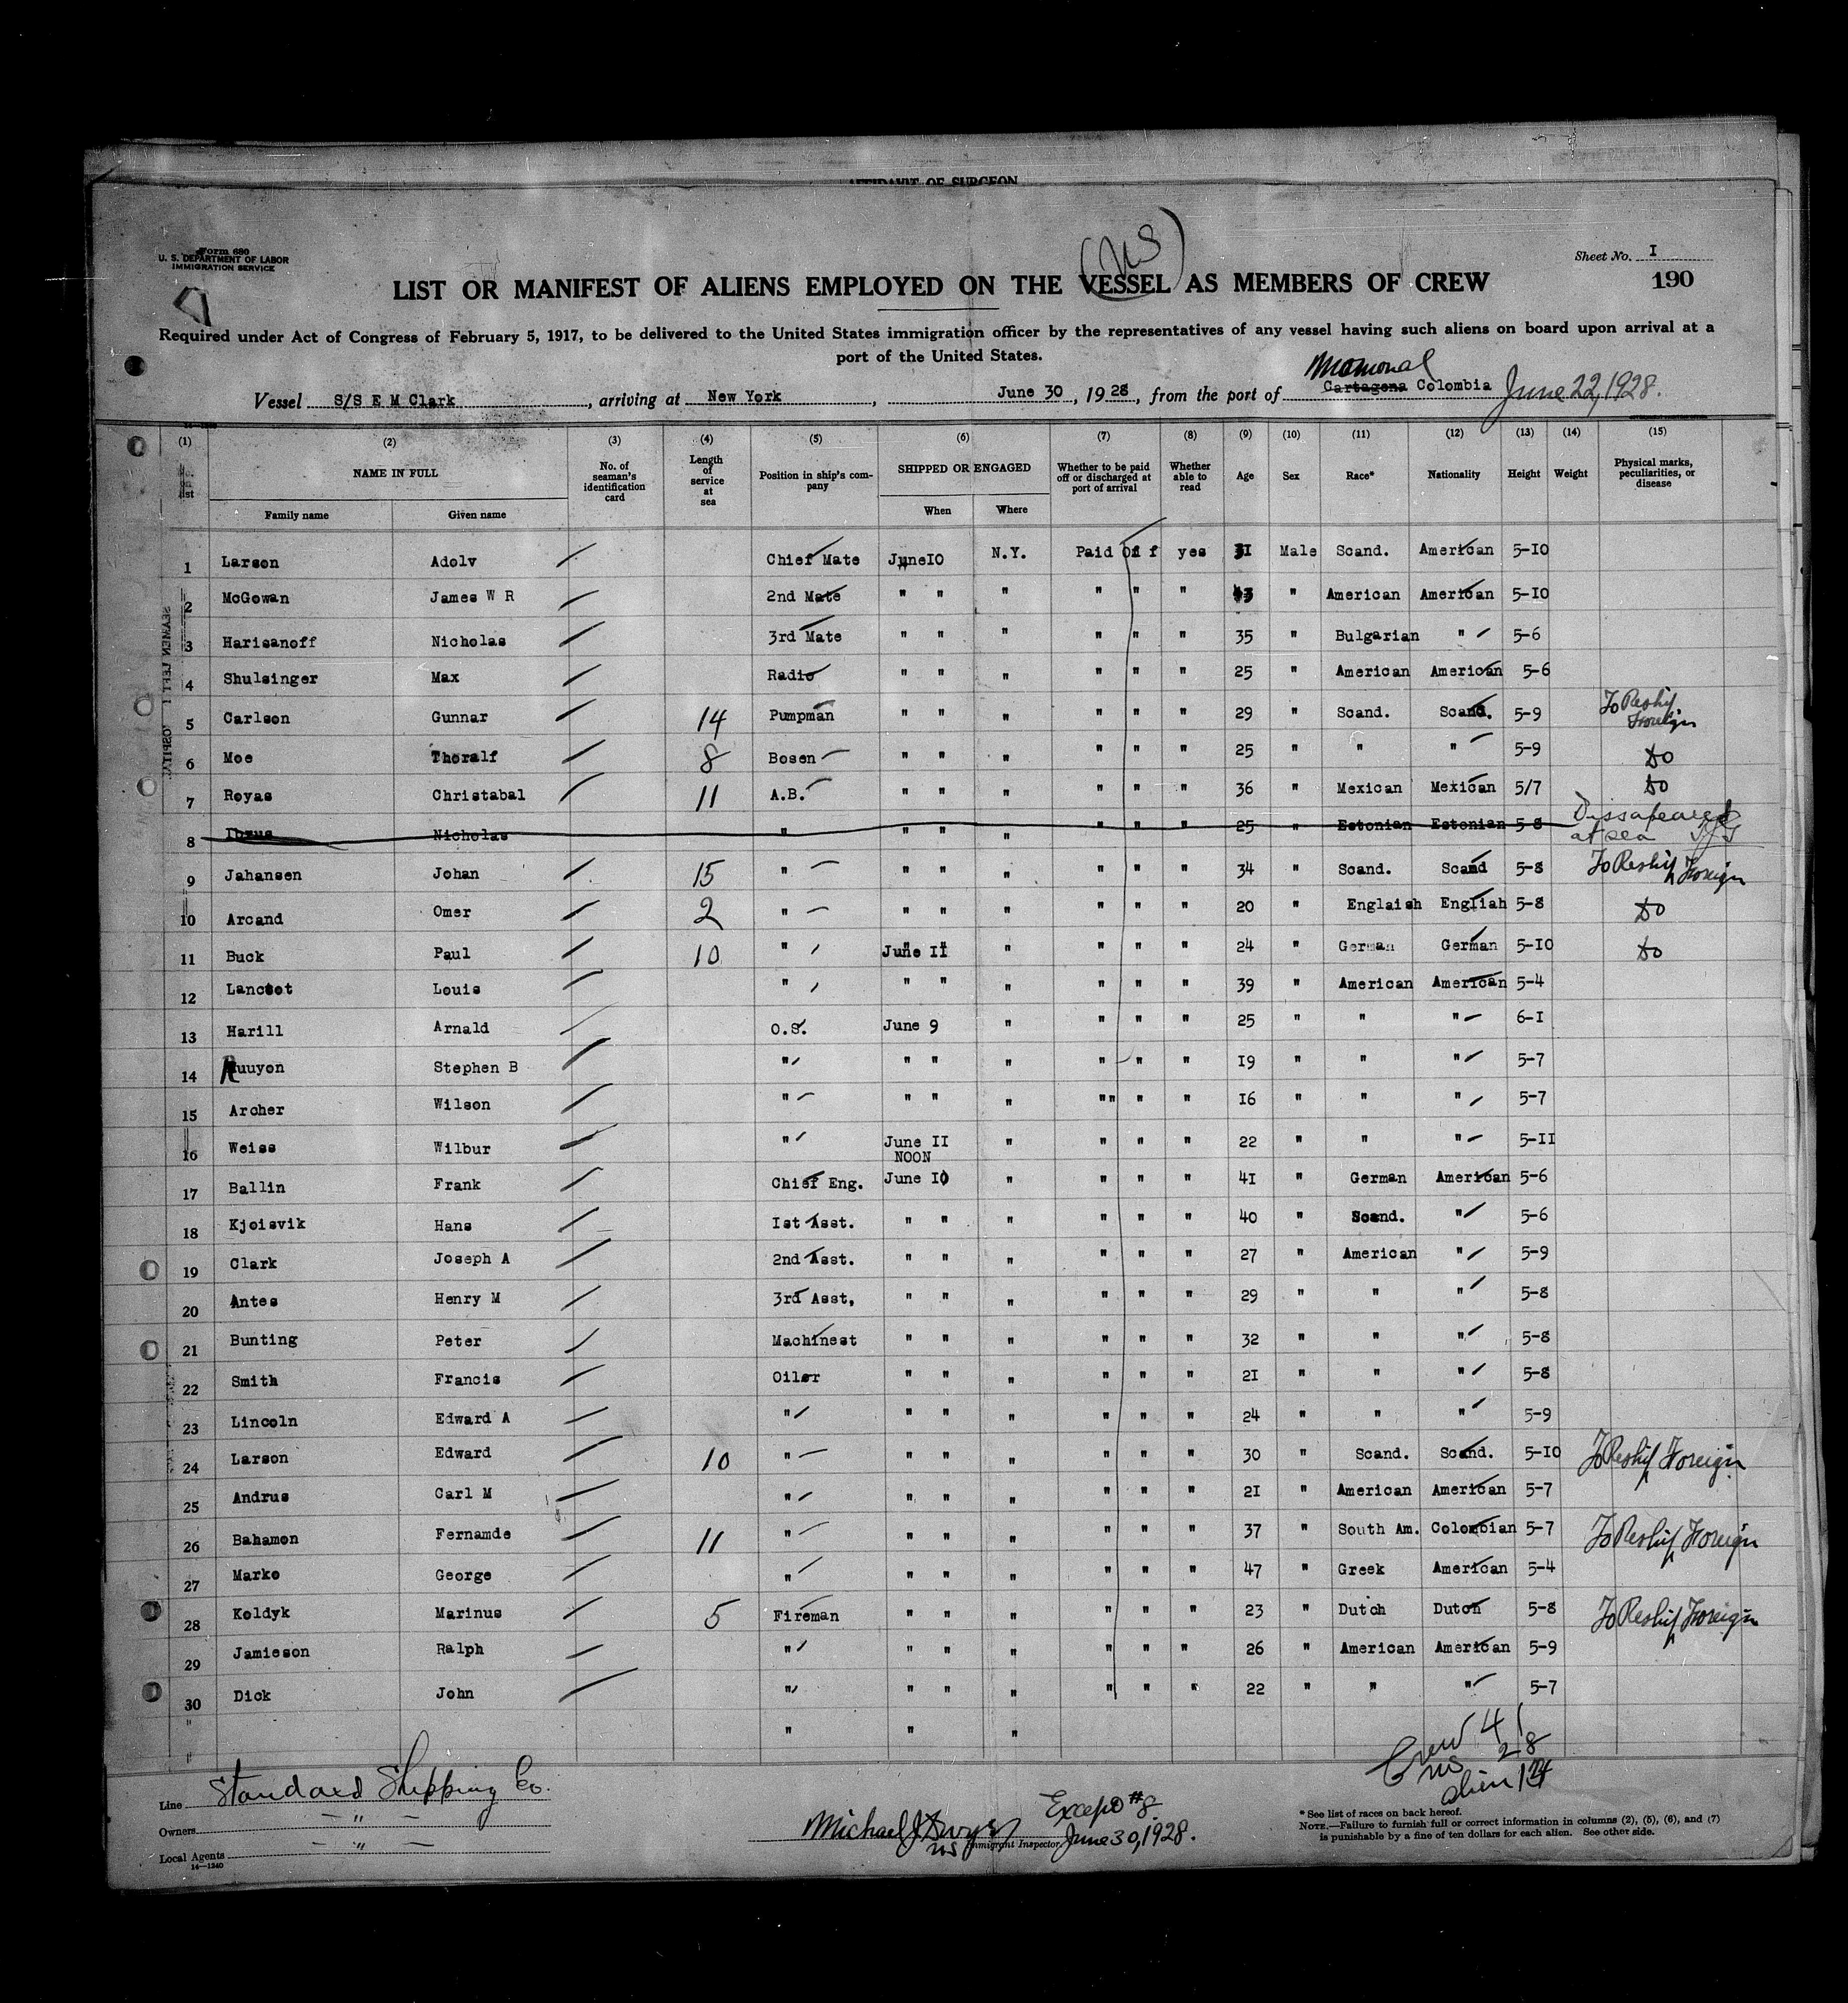 AFFIDAVIT OF SURGEON
(US)
Form 680
U. S. DEPARTMENT OF LABOR
IMMIGRATION SERVICE
Sheet No. I
190
LIST OR MANIFEST OF ALIENS EMPLOYED ON THE VESSEL AS MEMBERS OF CREW
Required under Act of Congress of February 5, 1917, to be delivered to the United States immigration officer by the representatives of any vessel having such aliens on board upon arrival at a
port of the United States.
Mamonal
Vessel S/S E M Clark, arriving at New York, June 30, 1928, from the port of Cartagena Colombia June 22, 1928.
(1) (2) (3) (4) (5) (6) (7) (8) (9) (10) (11) (12) (13) (14) (15)
No. on list NAME IN FULL Family name Given name No. of seaman's identification card Length of service at sea Position in ship's company SHIPPED OR ENGAGED When Where Whether to be paid off or discharged at port of arrival Whether able to read Age Sex Race* Nationality Height Weight Physical marks, peculiarities, or disease
1 Larson Adolv Chief Mate June10 N.Y. Paid Off yes 31 Male Scand. American 5-10
2 McGowan James W R 2nd Mate " " " " " " 43 " American American 5-10
3 Harisanoff Nicholas 3rd Mate " " " " " " 35 " Bulgarian " 5-6
4 Shulsinger Max Radio " " " " " " 25 " American American 5-6
5 Carlson Gunnar 14 Pumpman " " " " " " 29 " Scand. Scand. 5-9 To Reship Foreign
6 Moe Thoralf 8 Bosen " " " " " " 25 " " " 5-9 Do
7 Royas Christabal 11 A.B. " " " " " " 36 " Mexican Mexican 5/7 Do
8 Ibrus Nicholas " " " " " " " 25 " Estonian Estonian 5-8 Dissapeared at sea
9 Jahansen Johan 15 " " " " " " " 34 " Scand. Scand 5-8 To Reship Foreign
10 Arcand Omer 2 " " " " " " " 20 " Englaish Engliah 5-8 Do
11 Buck Paul 10 " June II " " " " 24 " German German 5-10 Do
12 Lanctot Louis " " " " " " " 39 " American American 5-4
13 Harill Arnald O.S. June 9 " " " " 25 " " " 6-I
14 Ruuyon Stephen B " " " " " " " 19 " " " 5-7
15 Archer Wilson " " " " "" " " 16 " " " 5-7
16 Weiss Wilbur " June II NOON " " " " 22 " " " 5-II
17 Ballin Frank Chief Eng. June 10 " " " " 41 " German American 5-6
18 Kjoisvik Hans Ist Asst. " " " " " " 40 " Scand. " 5-6
19 Clark Joseph A 2nd Asst. " " " " " " 27 " American " 5-9
20 Antes Henry M 3rd Asst, " " " " " " 29 " " " 5-8
21 Bunting Peter Machinest " " " " " " 32 " " " 5-8
22 Smith Francis Oiler " " " " " " 2I " " " 5-8
23 Lincoln Edward A " " " " " " " 24 " " " 5-9
24 Larson Edward 10 " " " " " " " 30 " Scand. Scand. 5-10 To Reship Foreign
25 Andrus Carl M " " " " " " " 2I " American American 5-7
26 Bahamon Fernamde 11 " " " " " " " 37 " South Am. Colombian 5-7 To Reship Foreign
27 Marko George " " " " " " " 47 " Greek American 5-4
28 Koldyk Marinus 5 Fireman " " " " " " 23 " Dutch Dutch 5-8 To Reship Foreign
29 Jamieson Ralph " " " " " " " 26 " American American 5-9
30 Dick John " " " " " " " 22 " " " 5-7
" " "
Crew 41
US 28
alien 14
Line Standard Shipping Co.
Owners — " —
Local Agents — " —
14—1240
Except #8
Michael J Dwyer Immigrant Inspector June 30, 1928.
* See list of races on back hereof.
NOTE.—Failure to furnish full or correct information in columns (2), (5), (6), and (7)
is punishable by a fine of ten dollars for each alien. See other side.